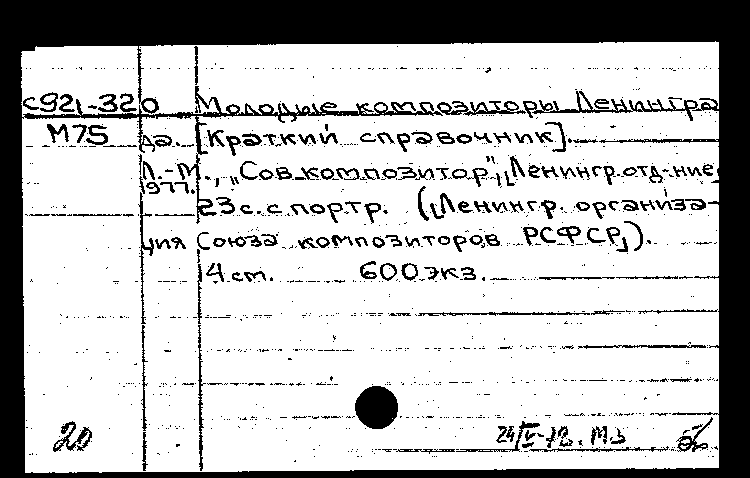 с921-320 Молодые композиторы Ленингра
М75 да. [Краткий справочник].
Л.-М., "Сов. композитор", [Ленингр. отд-ние,
1977.
23 с. с портр. ([Ленингр. организа-
ция Союза композиторов РСФСР]).
14 см. 600 экз.
20